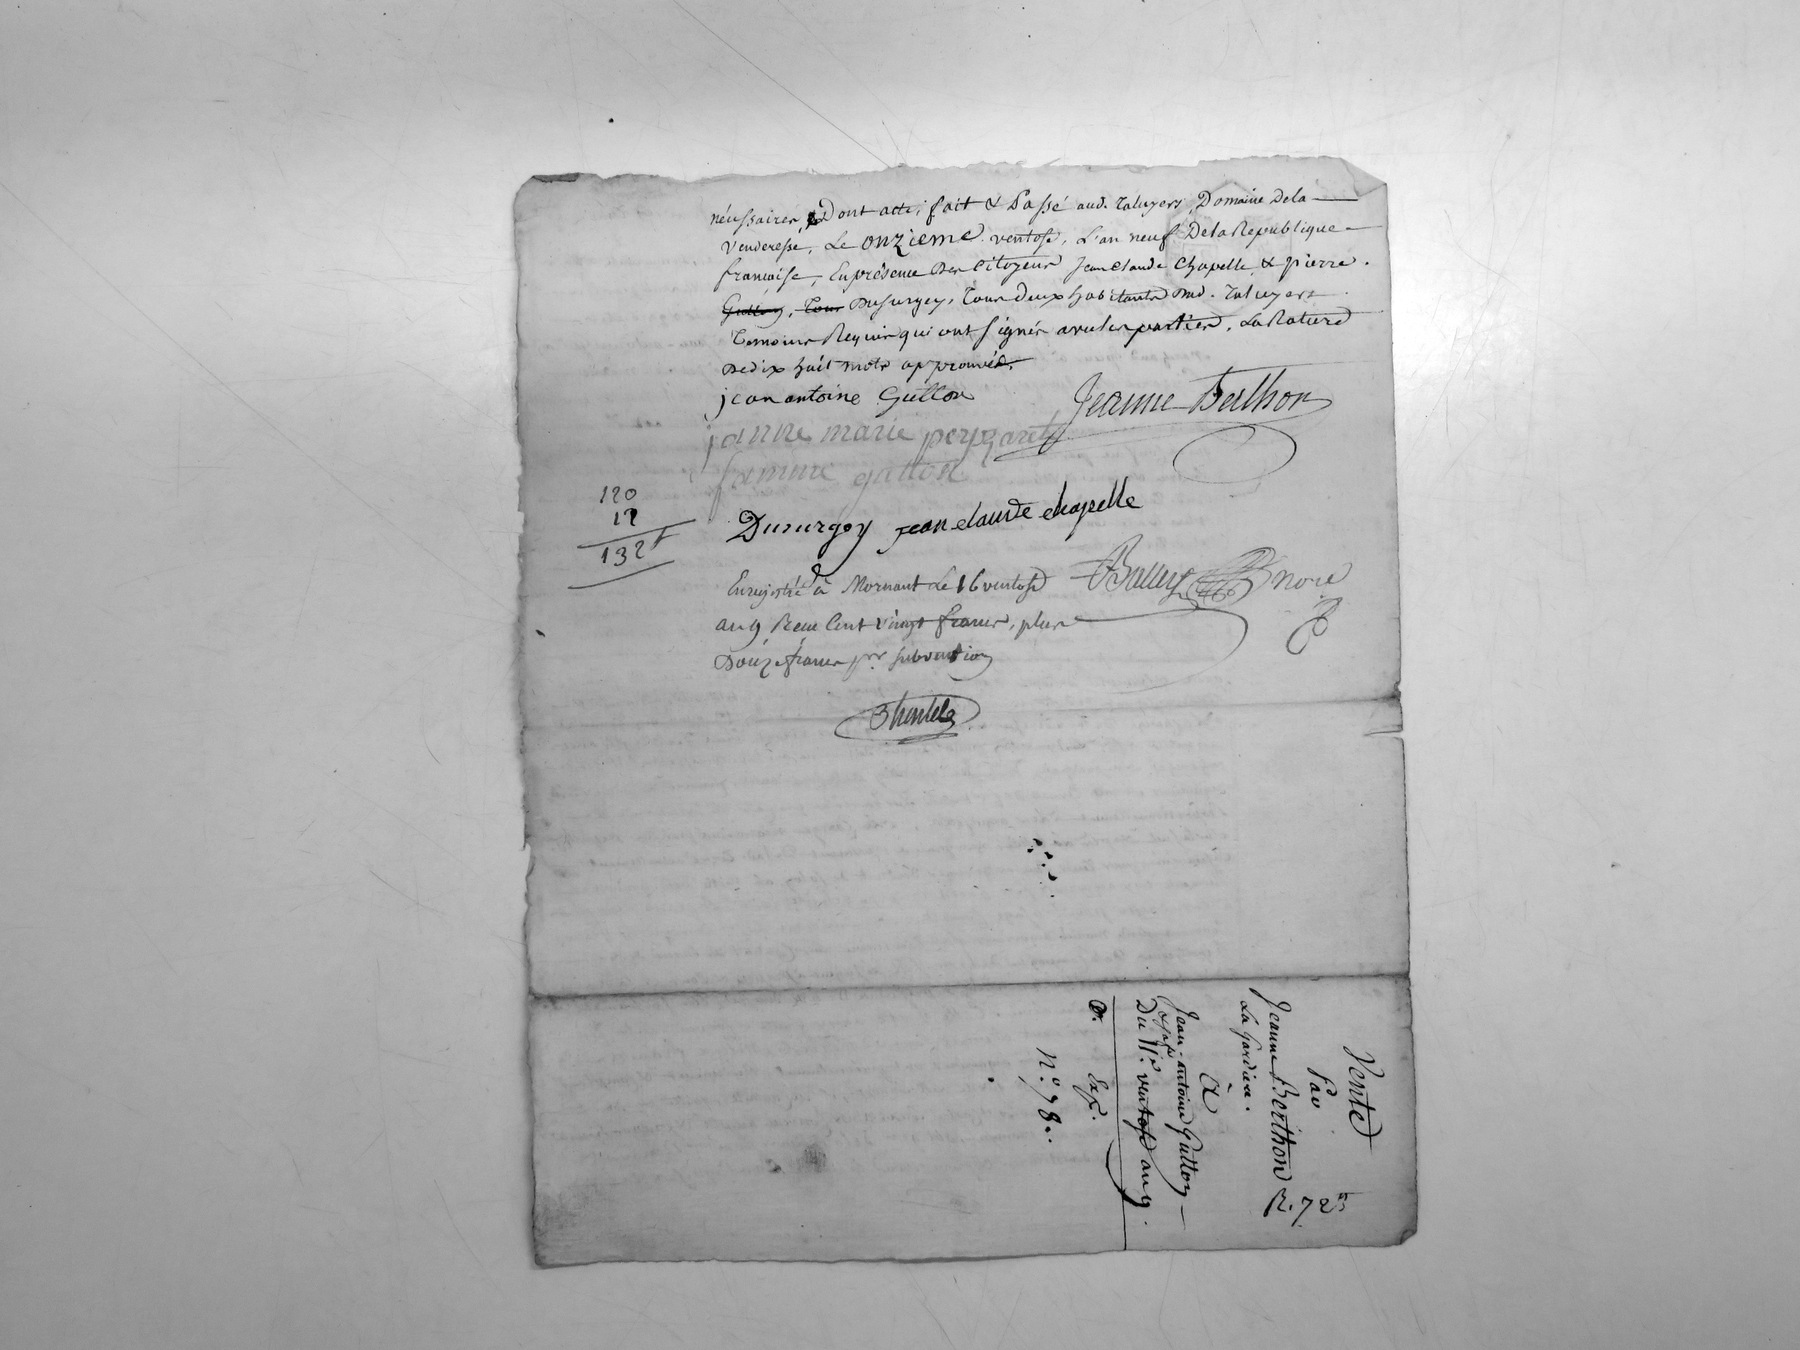 nécessaires, Dont acte, fait & Passé aud. Taluyers, Domaine Dela
Venderesse, Le onzieme ventose, L'an neuf Dela Republique
francaise, En présence Des Citoyens Jean Claude Chapelle & pierre
Gutton, Tous Dusurgey, Tous deux habitants Dud. Taluyers
Temoins Requis qui ont signés avec les parties, La Rature
De dix huit mots approuvée.
jean antoine Gutton
Jeanne Berthon
janne marie peyzaret
famme gutton
120
12
132 f
Dusurgey jean claude chapelle
Enregistré à Mornant Le 16 ventose
an 9 Recu Cent vingt francs, plus
Douze francs pr. subvention
nore
Vente
Par
Jeanne Berthon
La Jardiere.
R. 72
à
Jean-antoine Gutton
Du 11e. ventose an 9.
Exp.
N.° 78.